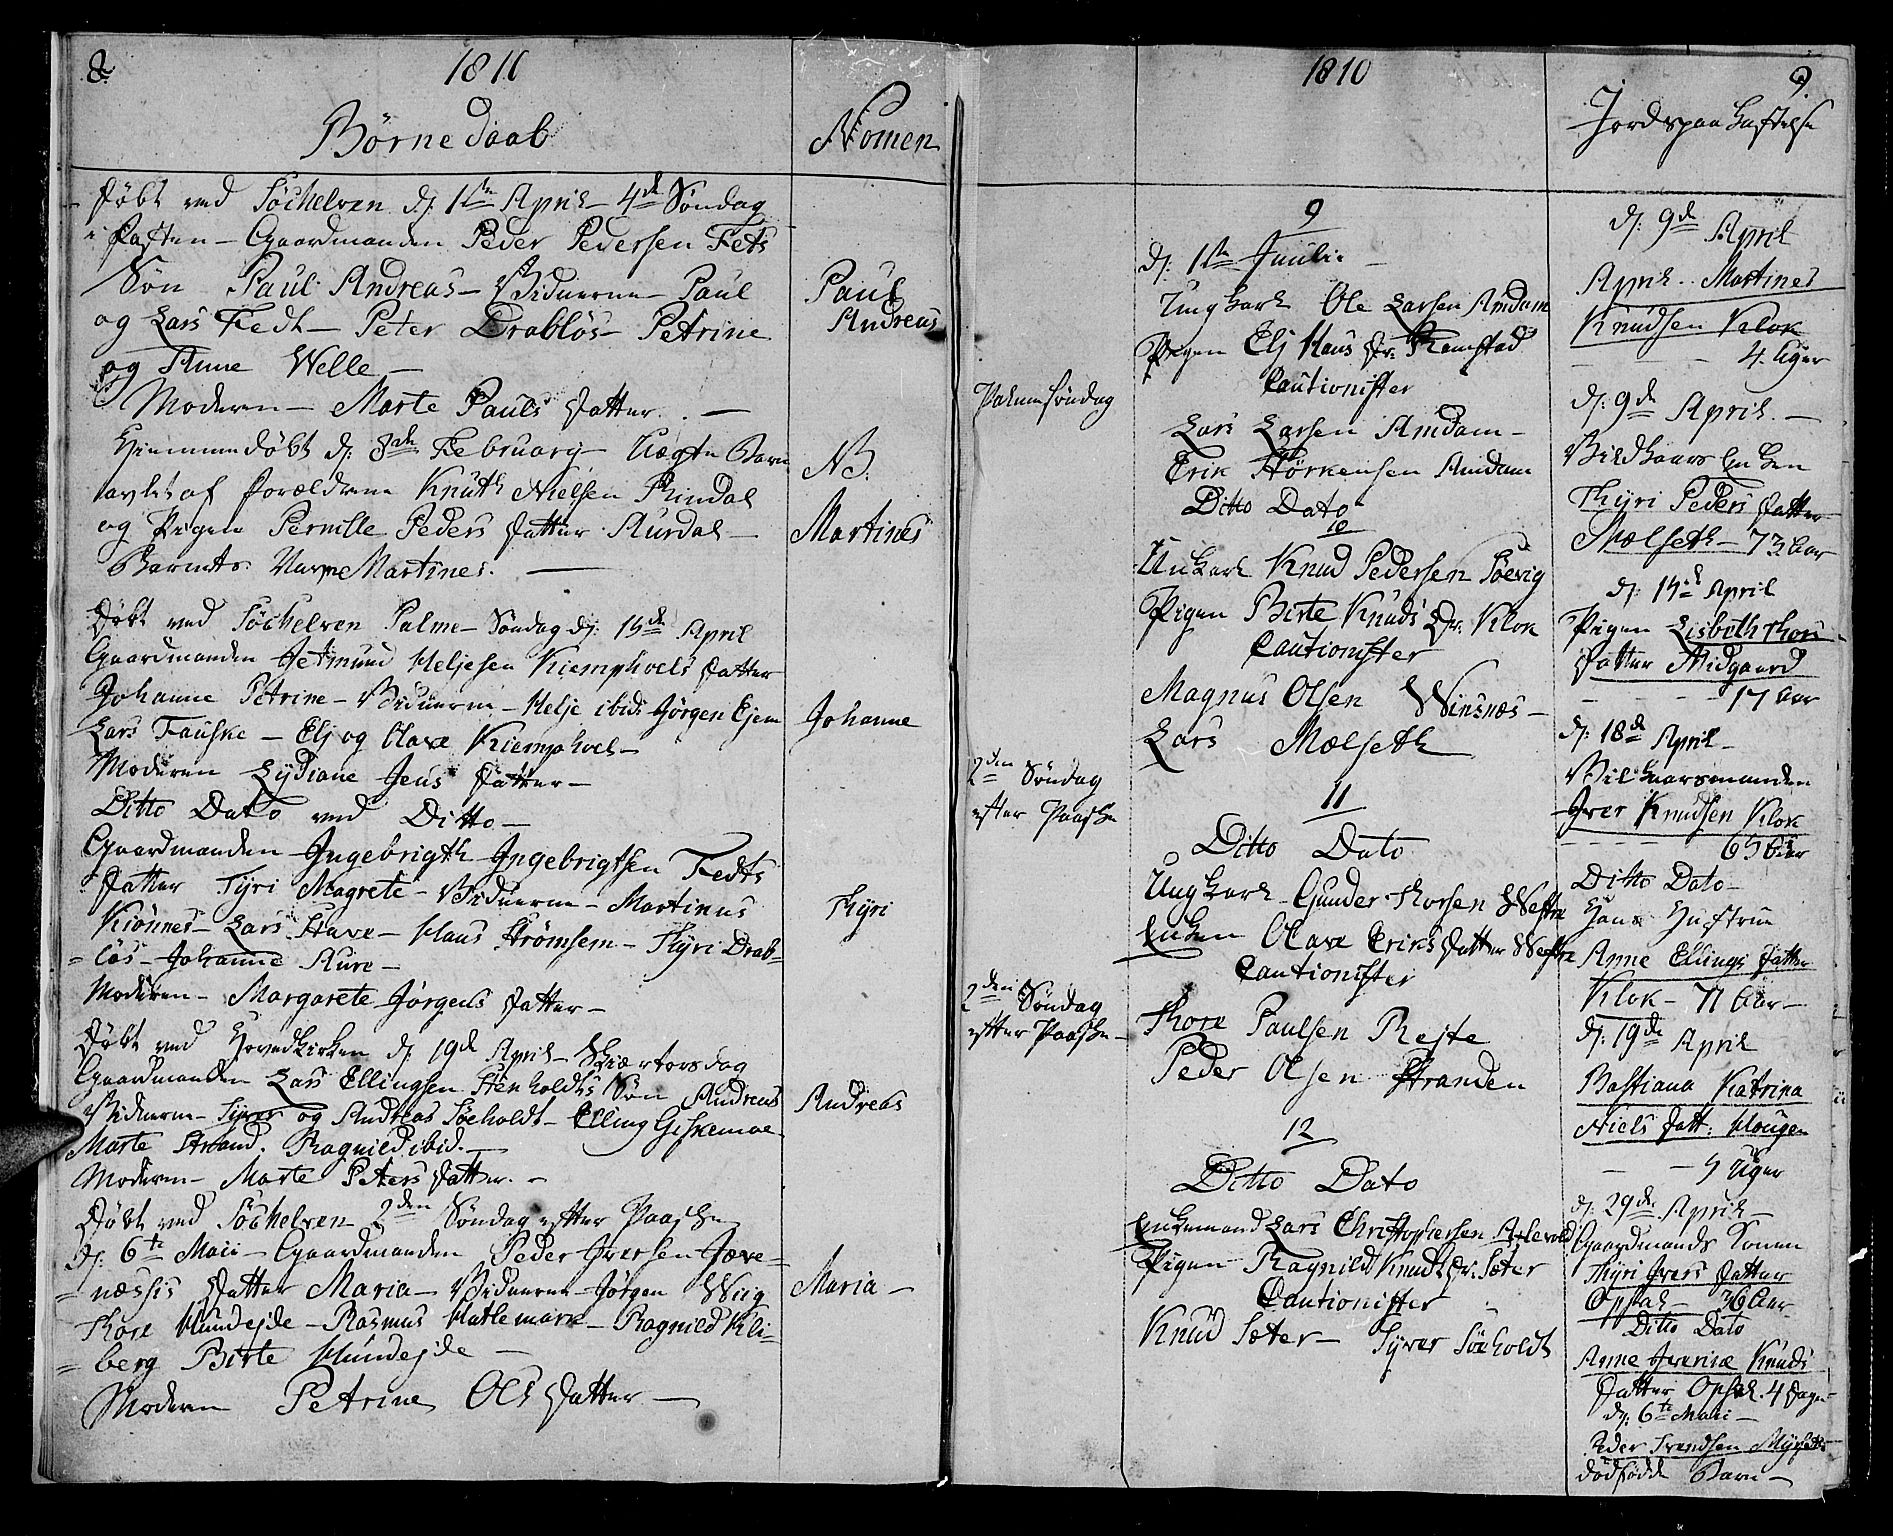 8.
1810
Børne Daab
Nomen
Døbt ved Søchelven d: 1ste April – 4de Søndag
i Fasten – Gaardmanden Peder Pedersen Fets
Søn Paul Andreas – Vidnerne – Paul
og Lars Fedt – Peter Drabløs – Petrine
og Anne Welle –
Moderen – Marte Pauls Datter. –
Paul
Andreas
Hiemmedøbt d: 8de February – Uægte Barn
avlet af Forældrene Knuth Nielsen Rindal
og Pigen Pernille Peders Datter Aurdal –
Barnets Navn Martines. –
NB.
Martines
Døbt ved Søchelven Palme – Søndag d: 15de April
Gaardmanden Jetmund Heljesen Kiemphoels Datter
Johanne Petrine – Vidnerne – Helje ibid: Jørgen Ejem
Lars Fauske – Elj og Olave Kiemphoel –
Moderen Lydiane Jens Datter –
Johanne
Ditto Dato ved Ditto –
Gaardmanden Ingebrigth Ingebrigtsen Fedts
Datter Tyri Magrete – Vidnerne – Martinus
Kiønnes – Lars Stave – Claus Strømsem – Thyri Drab=
=løs – Johanne Aure –
Moderen – Margarete Jørgens Datter –
Thyri
Døbt ved Hovedkirken d: 19de April – Skiærtorsdag
Gaardmanden Lars Ellingsen Stenholdts Søn Andreas
Vidnerne – Syver og Andreas Søeholdt – Elling Giskemoe
Marte Strand. Ragnild ibid. –
Moderen – Marte Peters Datter. –
Andreas
Døbt ved Søchelven 2den Søndag efter Paaske
d: 6te Maii – Gaardmanden Peder Iversen Jøve=
=næssis Datter Maria – Vidnerne – Jørgen Wiig
Thore Hundejde – Rasmus Hatlemark – Ragnild Kli=
=berg Birte Hundejde –
Moderen Petrine Ols Datter –
Maria –
1810
9.
Jordspaakastelse
Palmesøndag
2den Søndag
efter Paaske
2den Søndag
efter Paaske –
9
d: 1ste Juulii –
Ungkarl Ole Larsen Amdam
Pigen Elj Claus Dr. Ramstad
Cautionister
Lars Larsen Amdam –
Erik Størkersen Amdam
Ditto Dato
10
Unkarl Knud Pedersen Søevig
Pigen Birte Knuds Dr. Klok
Cautionister
Magnus Olsen Winsnæs –
Lars Mælseth
11
Ditto Dato
Ungkarl Gunder Thorsen Westre
Enken Olave Eriks Datter Westre
Cautionister
Thore Paulsen Rejte
Peder Olsen Stranden
12
Ditto Dato
Enkemand Lars Christophersen
Pigen Ragnild Knuds Dr. Sæter
Cautionister
Knud Sæter – Syver Søeholdt
d: 9de April
April Martines
Knudsen Klok
4. Uger
d: 9de April. –
Vilkaars Enken
Thyri Peders Datter
Mælseth – 73 Aar
d: 14de April
Pigen Lisbeth Thors
Datter Midgaard
17 Aar
d: 18de April –
Vilkaarsmanden
Iver Knudsen Klok
65 Aar
Ditto Dato –
Hans Hustrue
Anne Ellings Datter
Klok – 71 Aar –
d: 19de April
Bastiana Katrina
Niels Datt: Hougen
5 Uger
d: 29de April –
Gaardmands Konen
Thyri Ivers Datter
Opsal – 36 Aar
Ditto Dato
Anne Knuds
Datter Opsal. 4 Dage
d: 6te Maii –
Peder Svendsen Myrseth
dødfødde Barn –